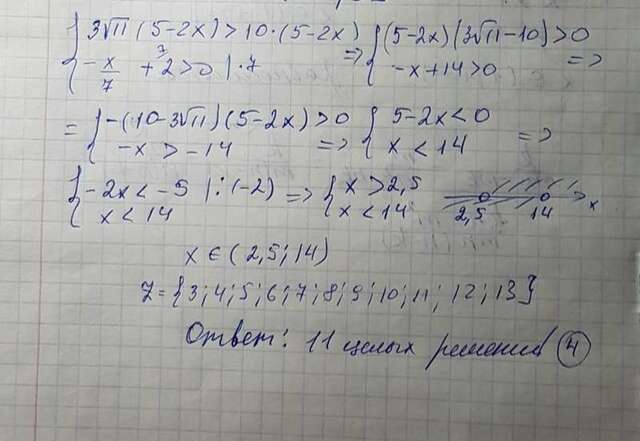 { 3√11 (5-2x) > 10·(5-2x) => { (5-2x)(3√11-10) > 0
{ -x/7 + 2 > 0 | ·7 { -x+14 > 0 =>
= { -(10-3√11)(5-2x) > 0 => { 5-2x < 0 =>
{ -x > -14 { x < 14
{ -2x < -5 | : (-2) => { x > 2,5
{ x < 14 { x < 14 2,5 14 x
x ∈ (2,5; 14)
Z = {3; 4; 5; 6; 7; 8; 9; 10; 11; 12; 13}
Ответ: 11 целых решений 4